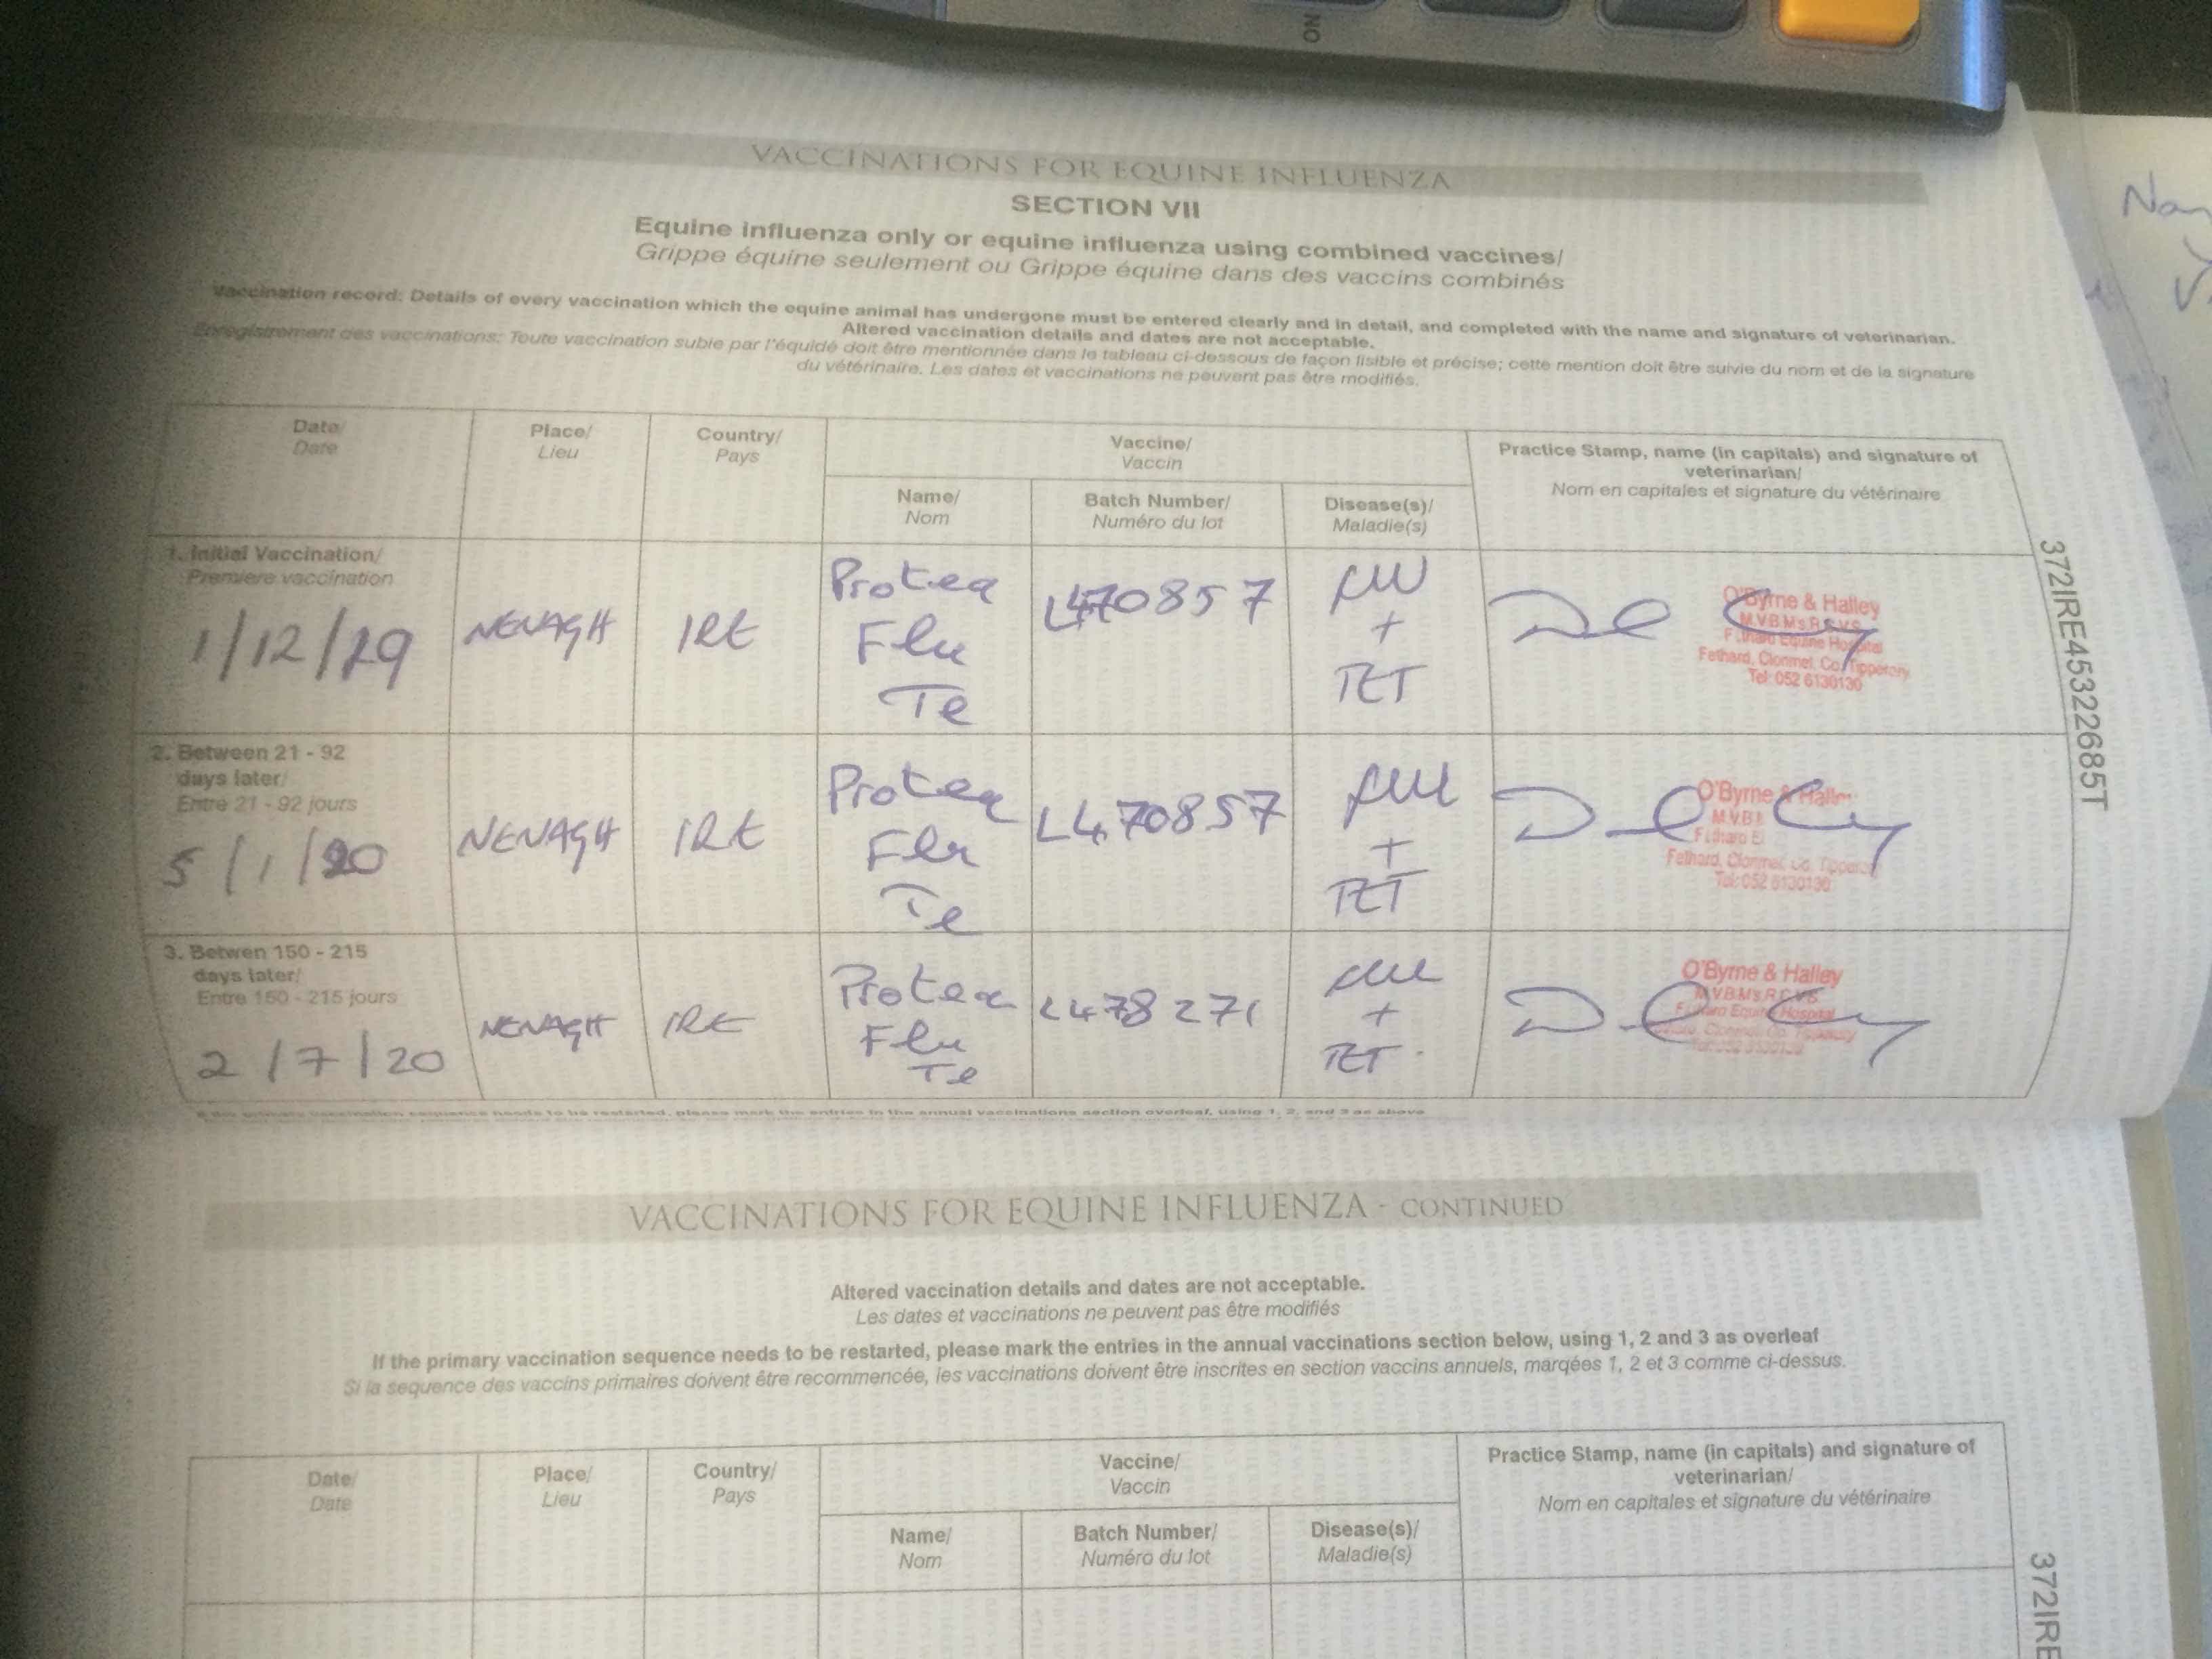 NO
VACCINATIONS FOR EQUINE INFLUENZA
SECTION VII
Equine influenza only or equine influenza using combined vaccines/
Grippe équine seulement ou Grippe équine dans des vaccins combinés
Vaccination record: Details of every vaccination which the equine animal has undergone must be entered clearly and in detail, and completed with the name and signature of veterinarian.
Altered vaccination details and dates are not acceptable.
Enregistrement des vaccinations: Toute vaccination subie par l'équidé doit être mentionnée dans le tableau ci-dessous de façon lisible et précise; cette mention doit être suivie du nom et de la signature
du vétérinaire. Les dates et vaccinations ne peuvent pas être modifiés.
Date/ Place/ Country/ Vaccine/ Practice Stamp, name (in capitals) and signature of
Date Lieu Pays Vaccin veterinarian/
Nom en capitales et signature du vétérinaire
Name/ Batch Number/ Disease(s)/
Nom Numéro du lot Maladie(s)
1. Initial Vaccination/
Premiere vaccination
1/12/19 NENAGH IRE Proteq L470857 FLU
Flu +
Te TET
O'Byrne & Halley
M.V.B M.s R.C.V.S
Equine Hospital
Fethard, Clonmel, Co. Tipperary
Tel: 052 6130130
2. Between 21 - 92
days later/
Entre 21 - 92 jours
5/1/20 NENAGH IRE Proteq L470857 FLU
Flu +
Te TET
O'Byrne
M.V.B
Fethard, Clonmel, Co. Tipperary
Tel: 052 6130130
3. Betwen 150 - 215
days later/
Entre 150 - 215 jours
2/7/20 NENAGH IRE Proteq L478271 FLU
Flu +
Te TET
O'Byrne & Halley
M.V.B M.s R.C.V.S
Equine Hospital
372IRE45322685T
If the primary vaccination sequence needs to be restarted, please mark the entries in the annual vaccinations section overleaf, using 1, 2, and 3 as above
VACCINATIONS FOR EQUINE INFLUENZA - CONTINUED
Altered vaccination details and dates are not acceptable.
Les dates et vaccinations ne peuvent pas être modifiés
If the primary vaccination sequence needs to be restarted, please mark the entries in the annual vaccinations section below, using 1, 2 and 3 as overleaf
Si la sequence des vaccins primaires doivent être recommencée, les vaccinations doivent être inscrites en section vaccins annuels, marqées 1, 2 et 3 comme ci-dessus.
Date/ Place/ Country/ Vaccine/ Practice Stamp, name (in capitals) and signature of
Date Lieu Pays Vaccin veterinarian/
Nom en capitales et signature du vétérinaire
Name/ Batch Number/ Disease(s)/
Nom Numéro du lot Maladie(s)
372IRE